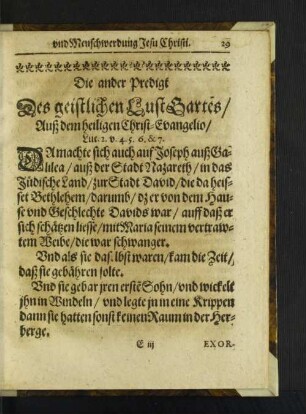 vnd Menschwerdung Jesu Christi. 29
Die ander Predigt
Des geistlichen Lust Gartēs/
Auß dem heiligen Christ-Evangelio/
Luc. 2. v. 4. 5. 6. & 7.
DA machte sich auch auf Joseph auß Ga-
lilea/ auß der Stadt Nazareth/ in das
Jüdische Land/ zur Stadt David/ die da heis-
set Bethlehem/ darumb/ dz er von dem Hau-
se vnd Geschlechte Davids war/ auff daß er
sich schätzen liesse/ mit Maria seinem vertraw-
tem Weibe/ die war schwanger.
Vnd als sie daselbst waren/ kam die Zeit/
daß sie gebähren solte.
Vnd sie gebar jren erstē Sohn/ vnd wickelt
jhn in Windeln/ vnd legte jn in eine Krippen
dann sie hatten sonst keinen Raum in der Her-
berge.
E iij EXOR-